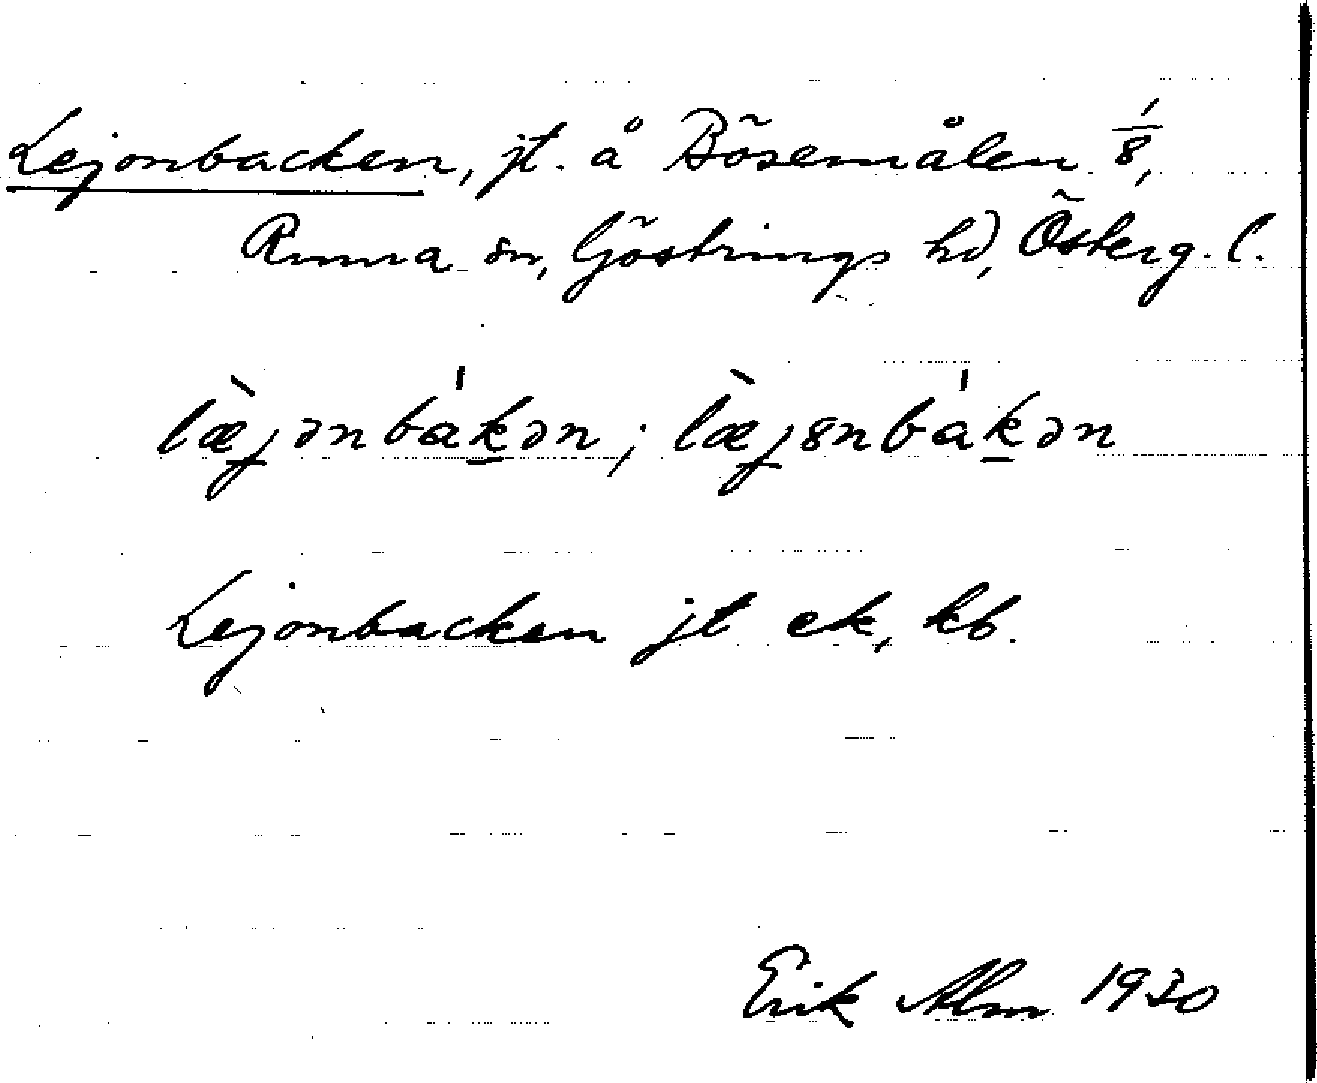 Lejonbacken, jt. å Bösemålen 1/8,
Rinna sn, Göstrings hd, Österg. l.
læ̀jənbákən; læ̀jɞnbákən
Lejonbacken jt ek, kb.
Erik Alm 1930